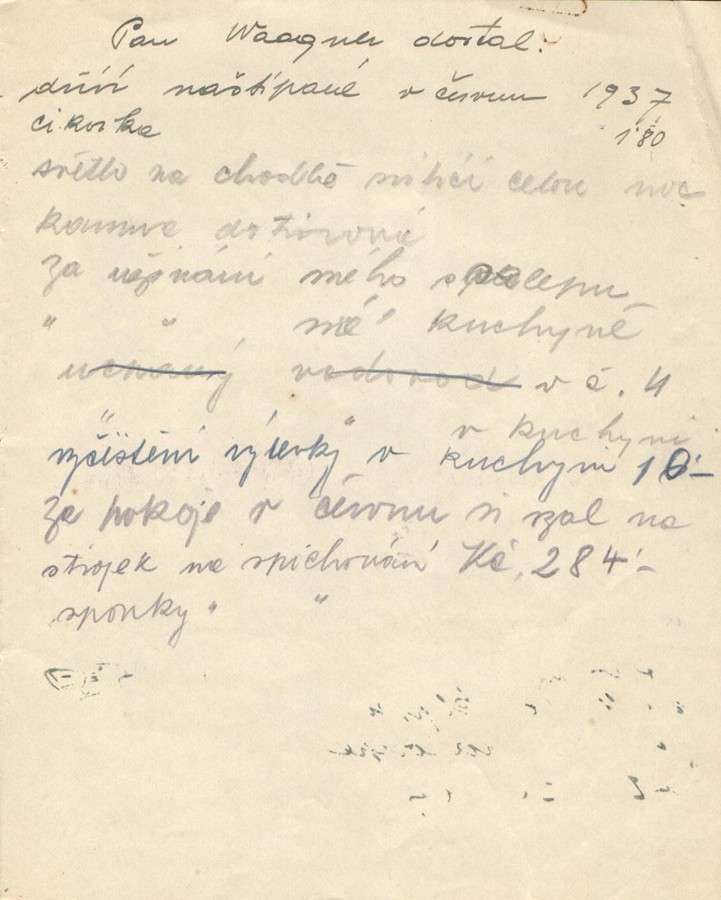 Pan Waagner dostal:
dříví naštípané v červnu 1937
cikorka 1'80
světlo na chodbě svítící celou noc
kamna
za užívání mého sklepu
" " mé kuchyně
v č. 4
v kuchyni
vyčištění výlevky v kuchyni 10'-
za pokoje v červnu si vzal na
strojek na spichování Kč. 284'-
sponky " "